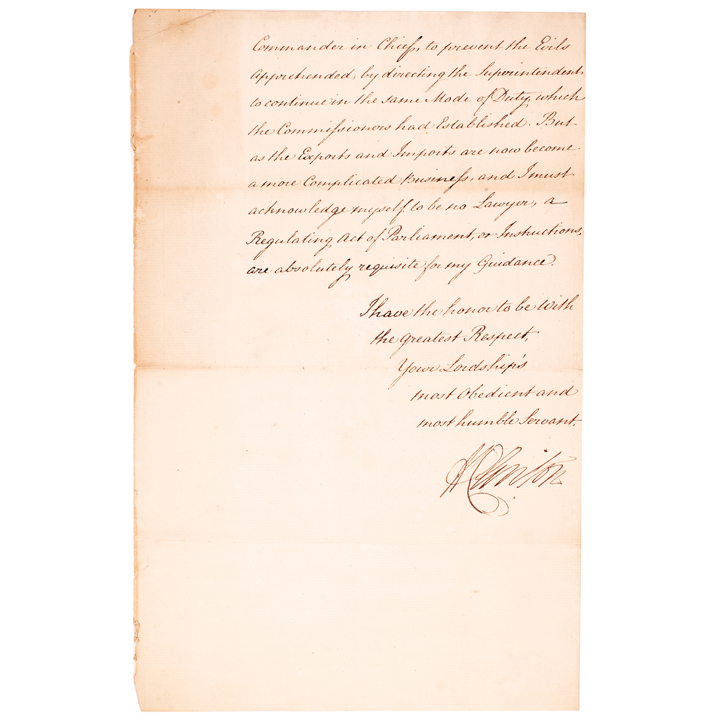 Commander in Chief, to prevent the Evils
apprehended, by directing the Superintendent,
to continue in the same Mode of Duty, which
the Commissioners had Established. But
as the Exports and Imports are now become
a more Complicated Business, and I must
acknowledge myself to be no Lawyer, a
Regulating Act of Parliament, or Instructions,
are absolutely requisite for my Guidance.
I have the honor to be With
the greatest Respect,
Your Lordship's
most Obedient and
most humble Servant.
H Clinton